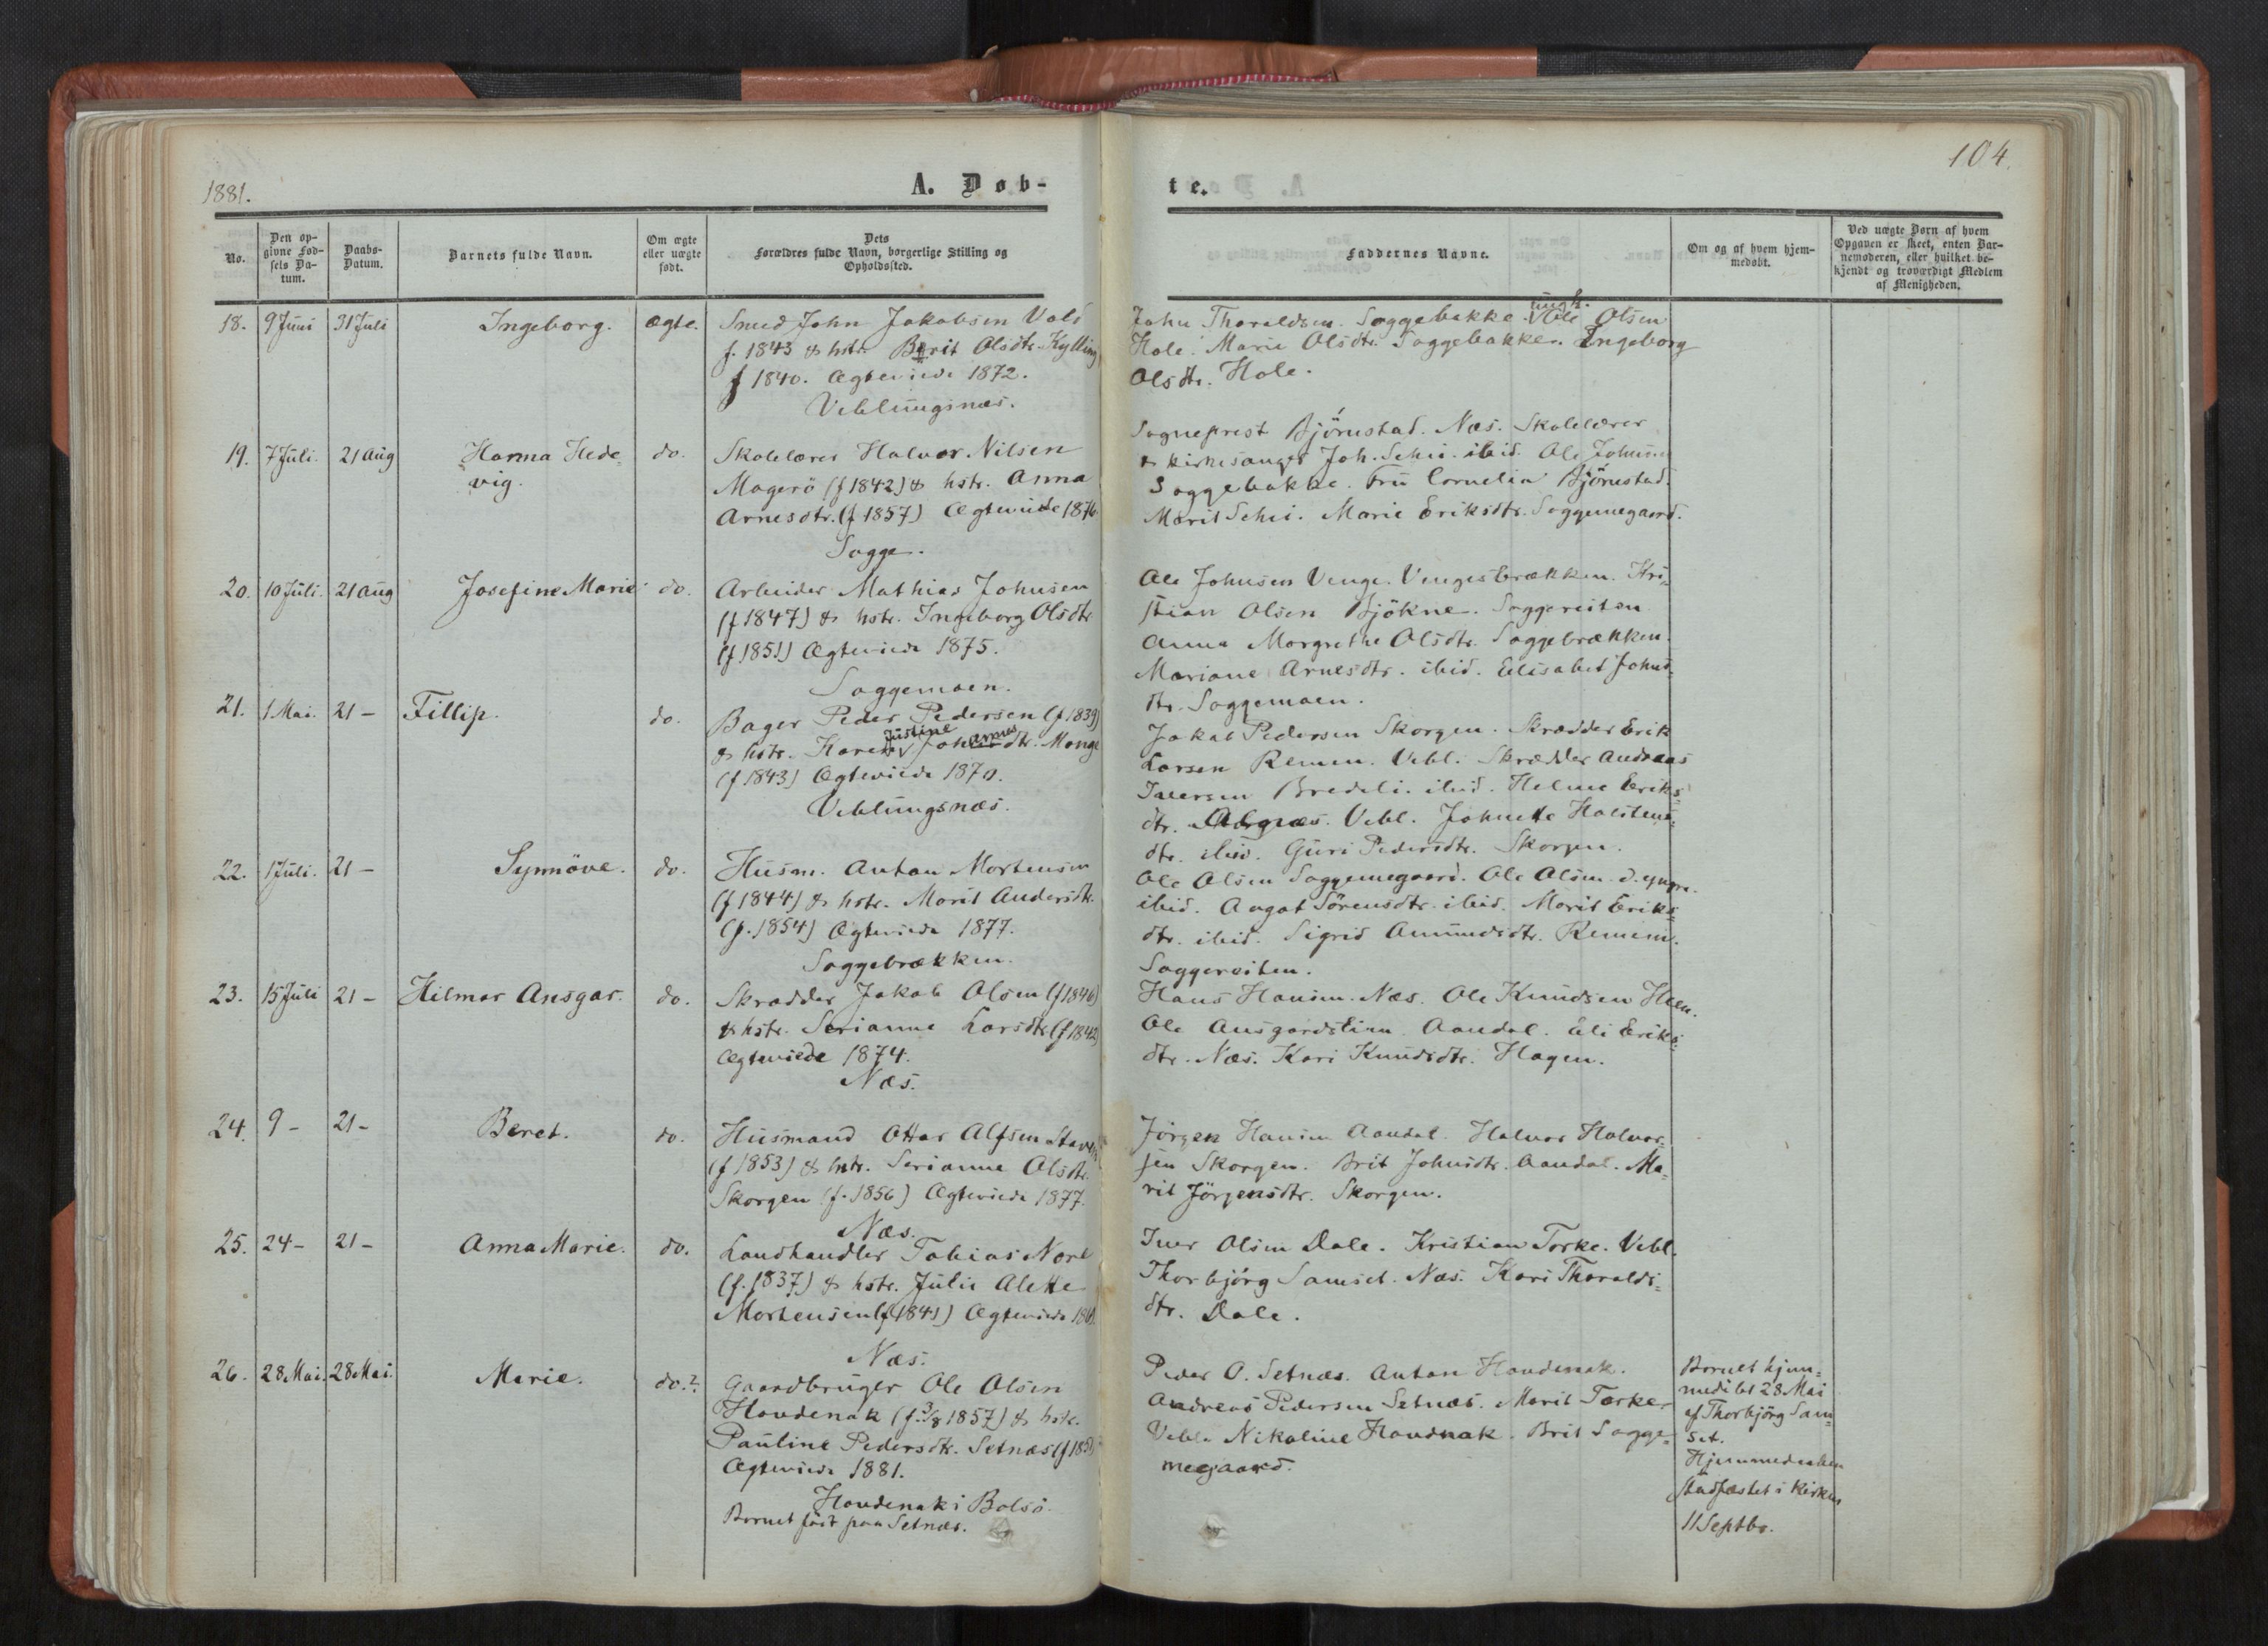 1881.
A. Døb-
No.
Den op-
givne Fød-
sels Da-
tum.
Daabs-
Datum.
Barnets fulde Navn.
Om ægte
eller uægte
født.
Dets
Forældres fulde Navn, borgerlige Stilling og
Opholdssted.
18. 9 Juni 31 Juli Ingeborg. ægte. Smed John Jakobsen Vold
f. 1843 & hstr. Berit Olsdtr. Kylling
f 1840. Ægteviede 1872.
Veblungsnæs.
19. 7 Juli. 21 Aug Hanna Hede-
vig.
do. Skolelærer Halvor Nilsen
Magerö (f 1842) & hstr. Anna
Arnesdtr. (f 1857) Ægteviede 1876
Sogge.
20. 10 Juli. 21 Aug Josefine Marie do. Arbeider Mathias Johnsen
(f 1847) & hstr. Ingeborg Olsdtr
(f 1851) Ægteviede 1875.
Soggemoen.
21. 1 Mai. 21 - Fillip. do. Bager Peder Pedersen (f 1839)
& hstr. Karen Justine Johannesdtr. Monge
(f 1843) Ægteviede 1870.
Veblungsnæs.
22. 1 Juli. 21 - Synnöve. do. Husm. Anton Mortensen
(f 1844) & hstr. Marit Andersdtr.
(f. 1854) Ægteviede 1877.
Soggebrækken.
23. 15 Juli 21 - Hilmar Ansgar. do. Skrædder Jakob Olsen (f 1846)
& hstr. Serianne Larsdtr. (f 1842)
Ægteviede 1874.
Næs.
24. 9 - 21 - Beret. do. Husmand Ottar Alfsen
(f 1853) & hstr. Serianne Olsdtr.
Skorgen (f. 1856) Ægteviede 1877.
Næs.
25. 24 - 21 - Anna Marie. do. Landhandler Tobias
(f. 1837) & hstr. Julie Alette
Mortensen (f 1841) Ægteviede
Næs.
26. 28 Mai. 28 Mai. Marie. do.? Gaardbruger Ole Olsen
Hovdenak (f. 3/8 1857) & hstr.
Pauline Pedersdtr. Setnæs
Ægteviede 1881.
Hovdenak i Bolsö.
Barnet födt paa Setnæs.
104.
te.
Faddernes Navne.
Om og af hvem hjem-
medøbt.
Ved uægte Børn af hvem
Opgaven er skeet, enten Bar-
nemoderen, eller hvilket be-
kjendt og troværdigt Medlem
af Menigheden.
ungk.
John Thoraldsen. Soggebakke. Ole Olsen
Hole. Marie Olsdtr. Soggebakken. Ingeborg
Olsdtr. Hole.
Sogneprest Björnstad. Næs. Skolelærer
& Kirkesanger Joh. Schei. ibid. Ole Johnsen
Soggebakke. Fru Cornelia Björnstad.
Marit Schei. Marie Eriksdtr. Soggemegaard.
Ole Johnsen Venge. Vengesbrækken. Kri-
stian Olsen Bjökne. Soggereiten
Anna Margrethe Olsdtr. Soggebrækken.
Mariane Arnesdtr. ibid. Elisabet Johns-
dtr. Soggemoen.
Jakob Pedersen Skorgen. Skrædder Erik
Larsen Remem. Vebl. Skrædder Andreas
Iversen Bredeli. ibid. Heline Eriks-
dtr. Vebl. Johnette Halstens-
dtr. ibid. Guri Pedersdtr. Skorgen.
Ole Olsen Soggemegaard. Ole Olsen d. yngre.
ibid. Aagot Sörensdtr. ibid. Marit Eriks-
dtr. ibid. Sigrid Amundsdtr. Remem.
Soggereiten.
Hans Hansen. Næs. Ole Knudsen Heen.
Ole Ansgardstien. Aandal. Eli Eriks-
dtr. Næs. Kari Knudsdtr. Hagen.
Jörgen Hansen Aandal. Halvor Halvor-
sen Skorgen. Brit Johnsdtr. Aandal. Ma-
rit Jörgensdtr. Skorgen.
Iver Olsen Dale. Kristian Torke. Vebl.
Thorbjörg Samset. Næs. Kari Thoralds-
dtr. Dale.
Peder O. Setnæs. Anton Hovdenak.
Andreas Pedersen Setnæs. Marit Torke
Vebl. Nikoline Hovdnak. Brit Sogge-
megaard.
Barnet hjem-
medöbt 28 Mai
af Thorbjörg Sam-
set.
Hjemmedaaben
stadfæstet i Kirken
11 Septbr.